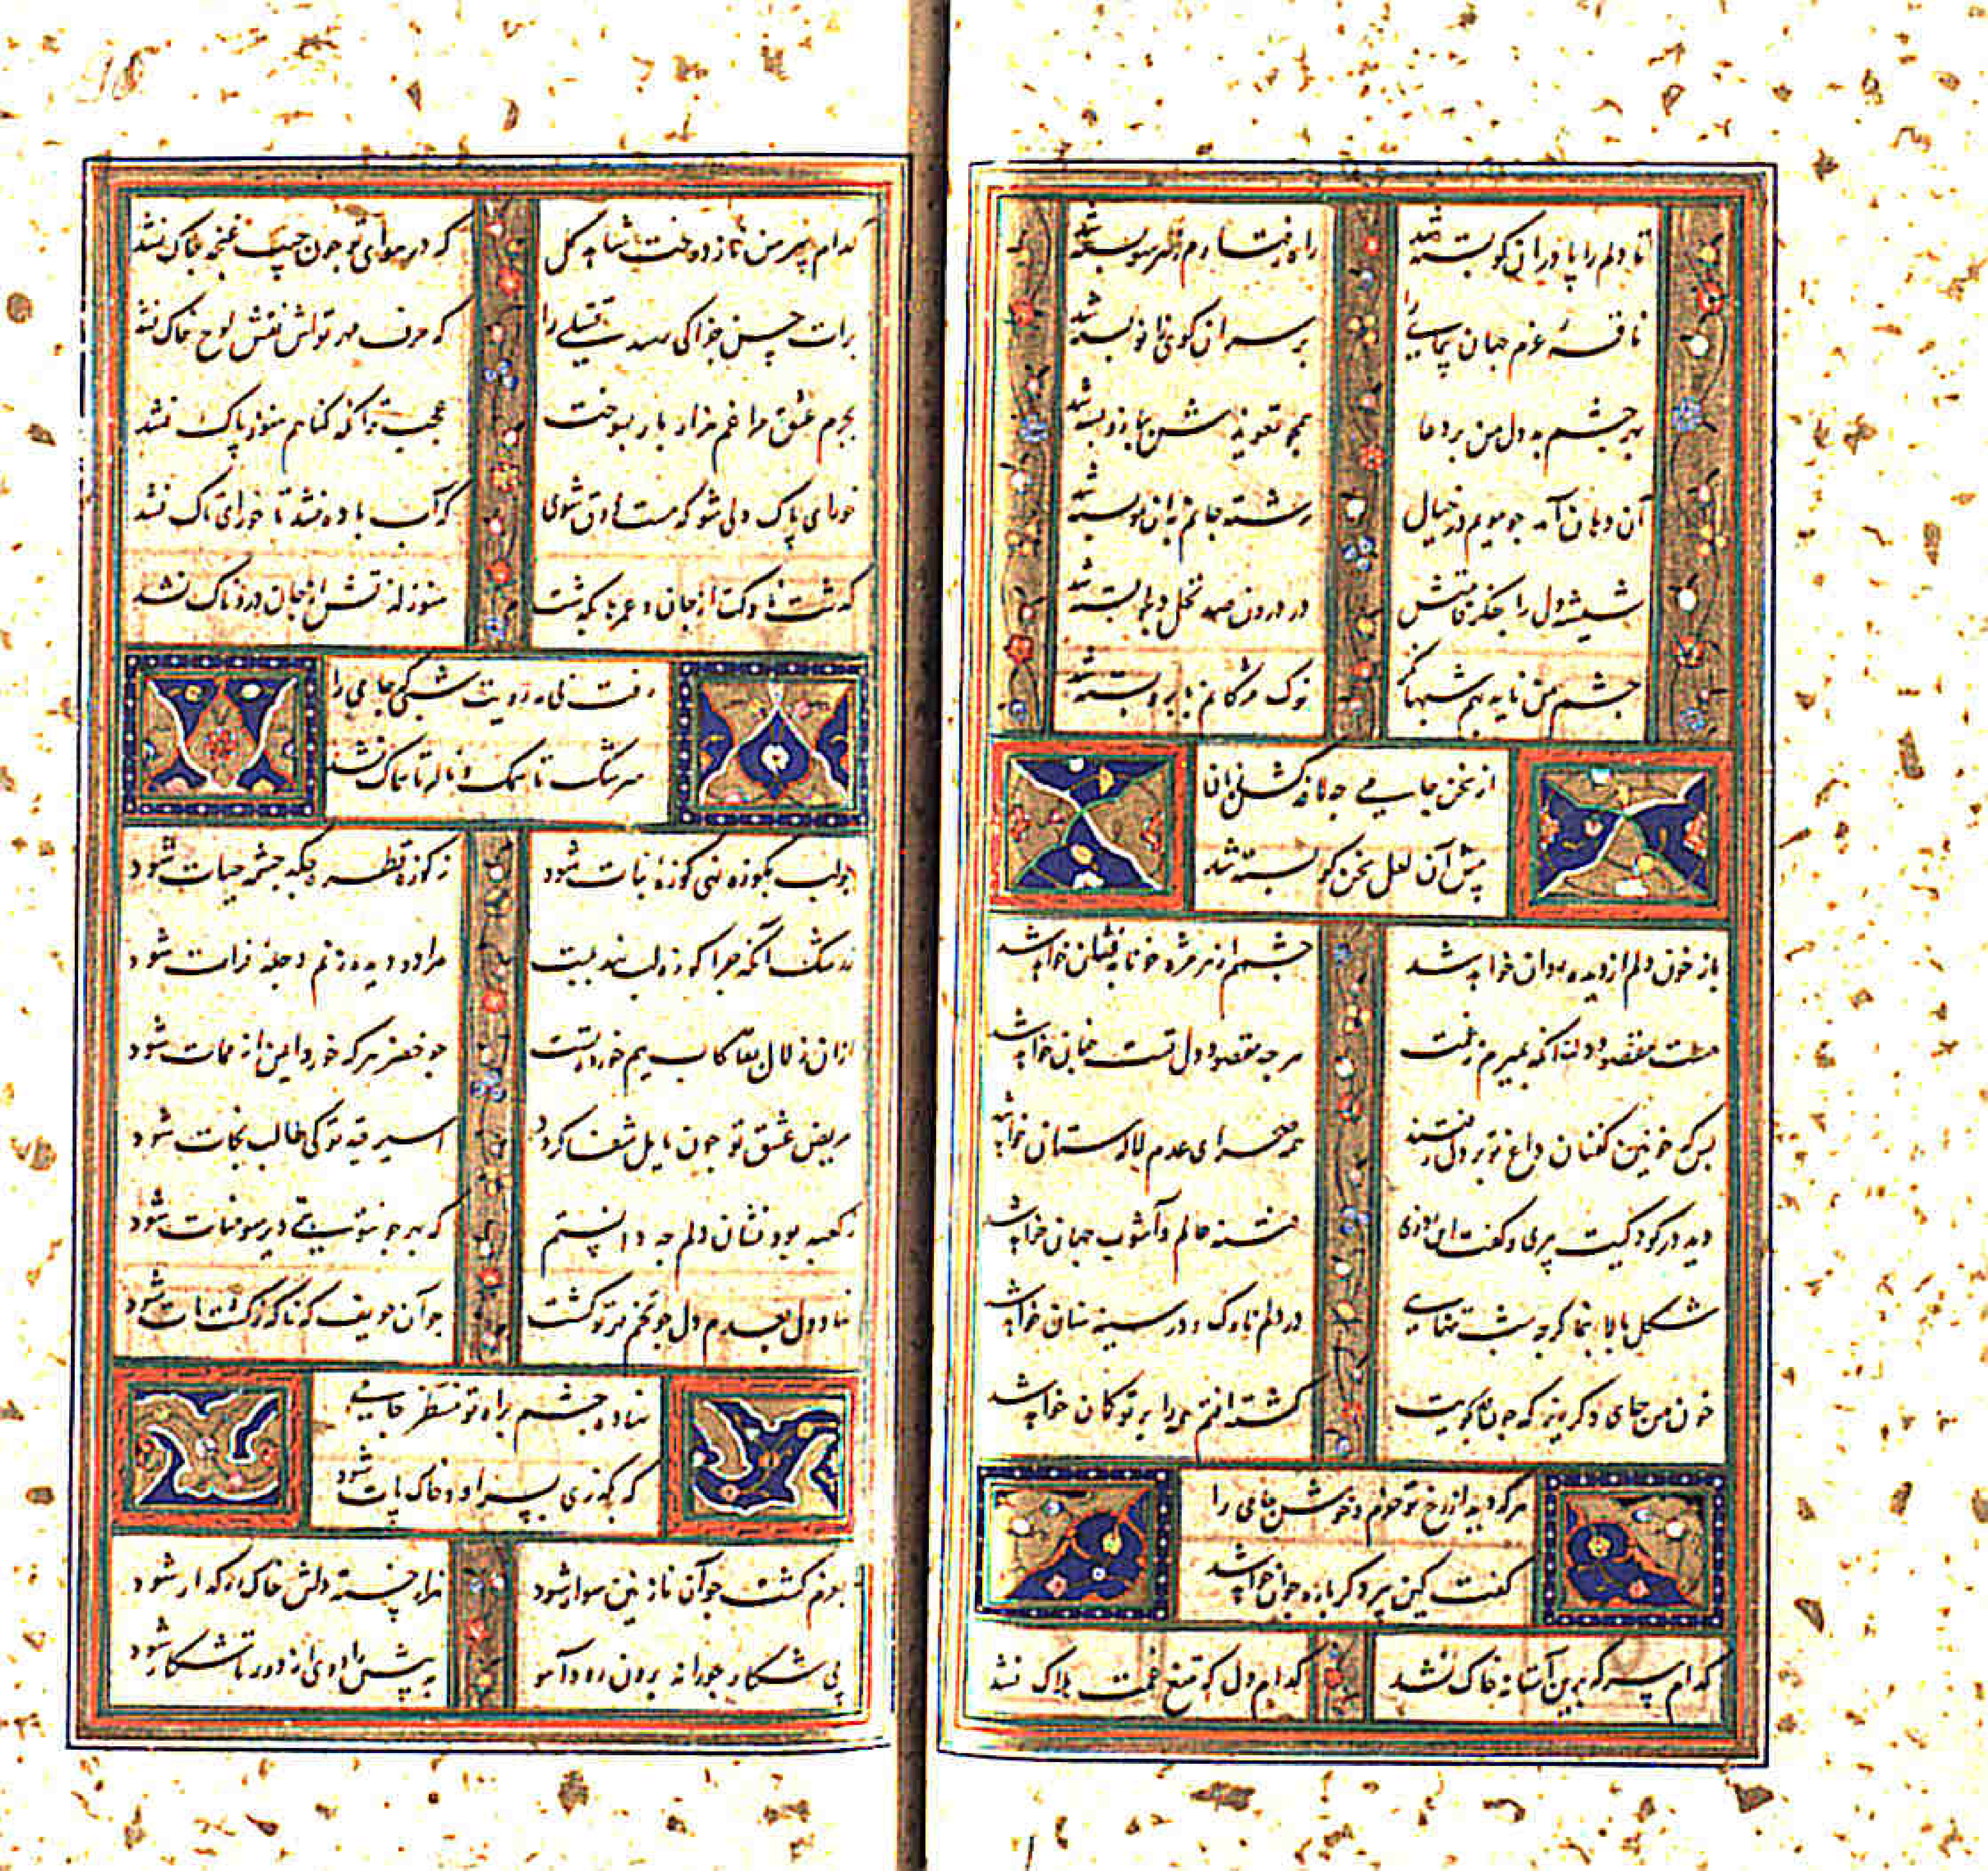 تا دلم را پا در ان کو بسته شد
راه رفتارم ز هر سو بسته شد
ناقهٔ عزم جهان پیمای را
بر سر ان کوی زانو بسته شد
بهر چشم بد دل من بر دعا
همچو تعویذش ببازو بسته شد
آن دهان آمد چو مویم در خیال
رشته جانم بدان مو بسته شد
شیشه دل را جفکر قامتش
در درون صد نخل دلجو بسته شد
چشم من ناید بهم شبها مگر
نوک مژکانم بابرو بسته شد
از سخن جامی چو ماند کش زبان
پیش آن لعل سخن کو بسته شد
باز خون دلم از دیده روان خواهد شد
چشمم از هر مژه خونابه فشان خواهد شد
هست مقصود دلت آنکه بمیرم ز غمت
هر چه مقصود دل تست همان خواهد شد
بس که خونین کفنان داغ تو بر دل رفتند
همه صحرای عدم لالستان خواهد شد
دید در کودکیت پیری و کفت این روزی
فتنه عالم و آشوب جهان خواهد شد
شکل بالا بنما کرچه
در دلم ناوک و در سینه سنان خواهد شد
خون من جای دکر ریز که چون
کشته افتم همه را بر تو کمان خواهد شد
هر که دید از رخ تو خرم و خوش جامی را
کفت کین پیر دکر باره جوان خواهد شد
کدام سر که برین آستانه خاک نشد
کدام دل که ز تیغ غمت هلاک نشد
کدام پیرهن ناز دوخت شاهد کل
که در هوای تو چون جیب غنچه چاک نشد
برات حسن جزا کی رسد قتیلی را
که حرف مهر تواش نقش لوح خاک نشد
بجرم عشق مرا غم هزار بار بسوخت
عجب تر آنکه کناهم هنوز پاک نشد
خورای پاک دلی شو که مست ذوق شوی
که آب باده نشد تا خورای تاک نشد
کذشت ناوکت از جان و عمرها بکذشت
هنوز لذتش از جان دردناک نشد
نرفت بی مه رویت شبی که جامی را
سرشک تا سمک و ناله تا سماک نشد
چو لب بکوزه نهی کوزهٔ نبات شود
ز کوزه قطره چکد چشمه حیات شود
ز رشک آنکه چرا کوزه لب نهد بلبت
مرا دو دیده ز نم دجله فرات شود
ازان زلال بقا کاب نیم خورده تست
چو خضر هر که خورد ایمن از ممات شود
مریض عشق تو چون مایل شفا کردد
اسیر قید تو کی طالب نجات شود
ز کعبه بود نشان دلم چه دانستم
که بهر چو تو بتی دیر سومنات شود
نهاد دل بعدم دل چو تخم مهر تو کشت
چو آن حریف که ناکه ز کشت مات شود
نهاده چشم براه تو منتظر جامی
که بکذری بسر او و خاک پات شود
بعزم کشت چو آن نازنین سوار شود
هزار خسته دلش خاک رهکذار شود
پی شکار چو رانه برون رود آهو
به پیش راه وی از دور تا شکار شود